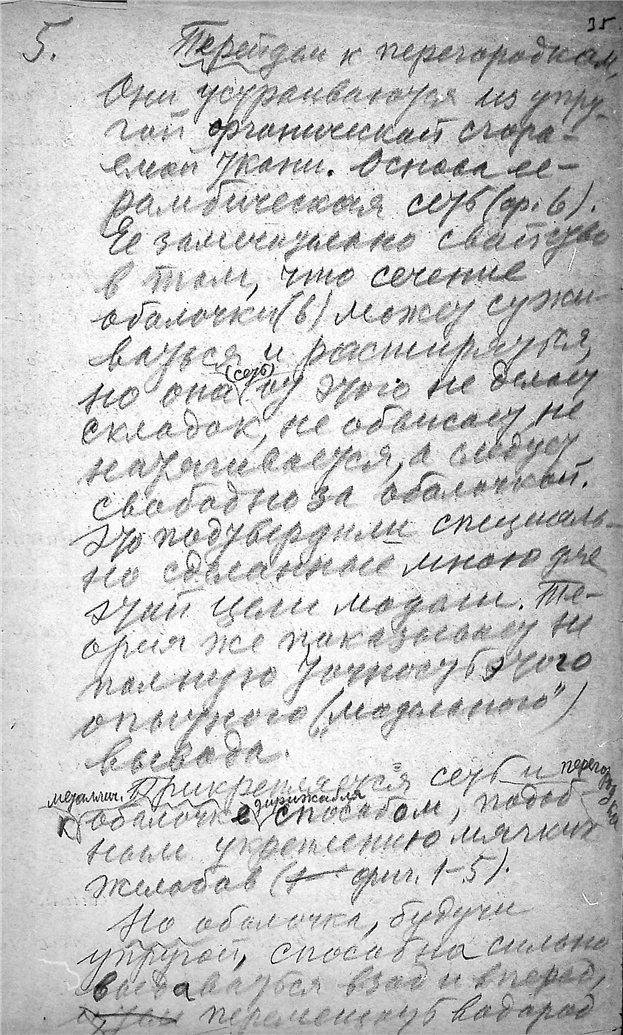 35
5. Перейдем к перегородкам.
Они устраиваются из упру-
гой органической сгора-
емой ткани. Основа ее –
ромбическая сеть (ф. 6).
Ее замечательно свойство
в том, что сечение
оболочки (6) может сужи-
ваться и расширяться,
но она (сеть) от этого не делает
складок, не обвисает не
натягивается, а следует
свободно за оболочкой.
Это подтвердили специаль-
но сделанные мною для
этой цели модели. Те-
ория же показывает не
полную точность этого
опытного („модельного")
вывода.
Прикрепляется сеть и перегородка
к металлич. оболочке дирижабля способом, подоб-
ным укреплению мягких
желобов (фиг. 1-5).
Но оболочка, будучи
упругой, способна сильно
вдаваться взад и вперед,
перемещать водород